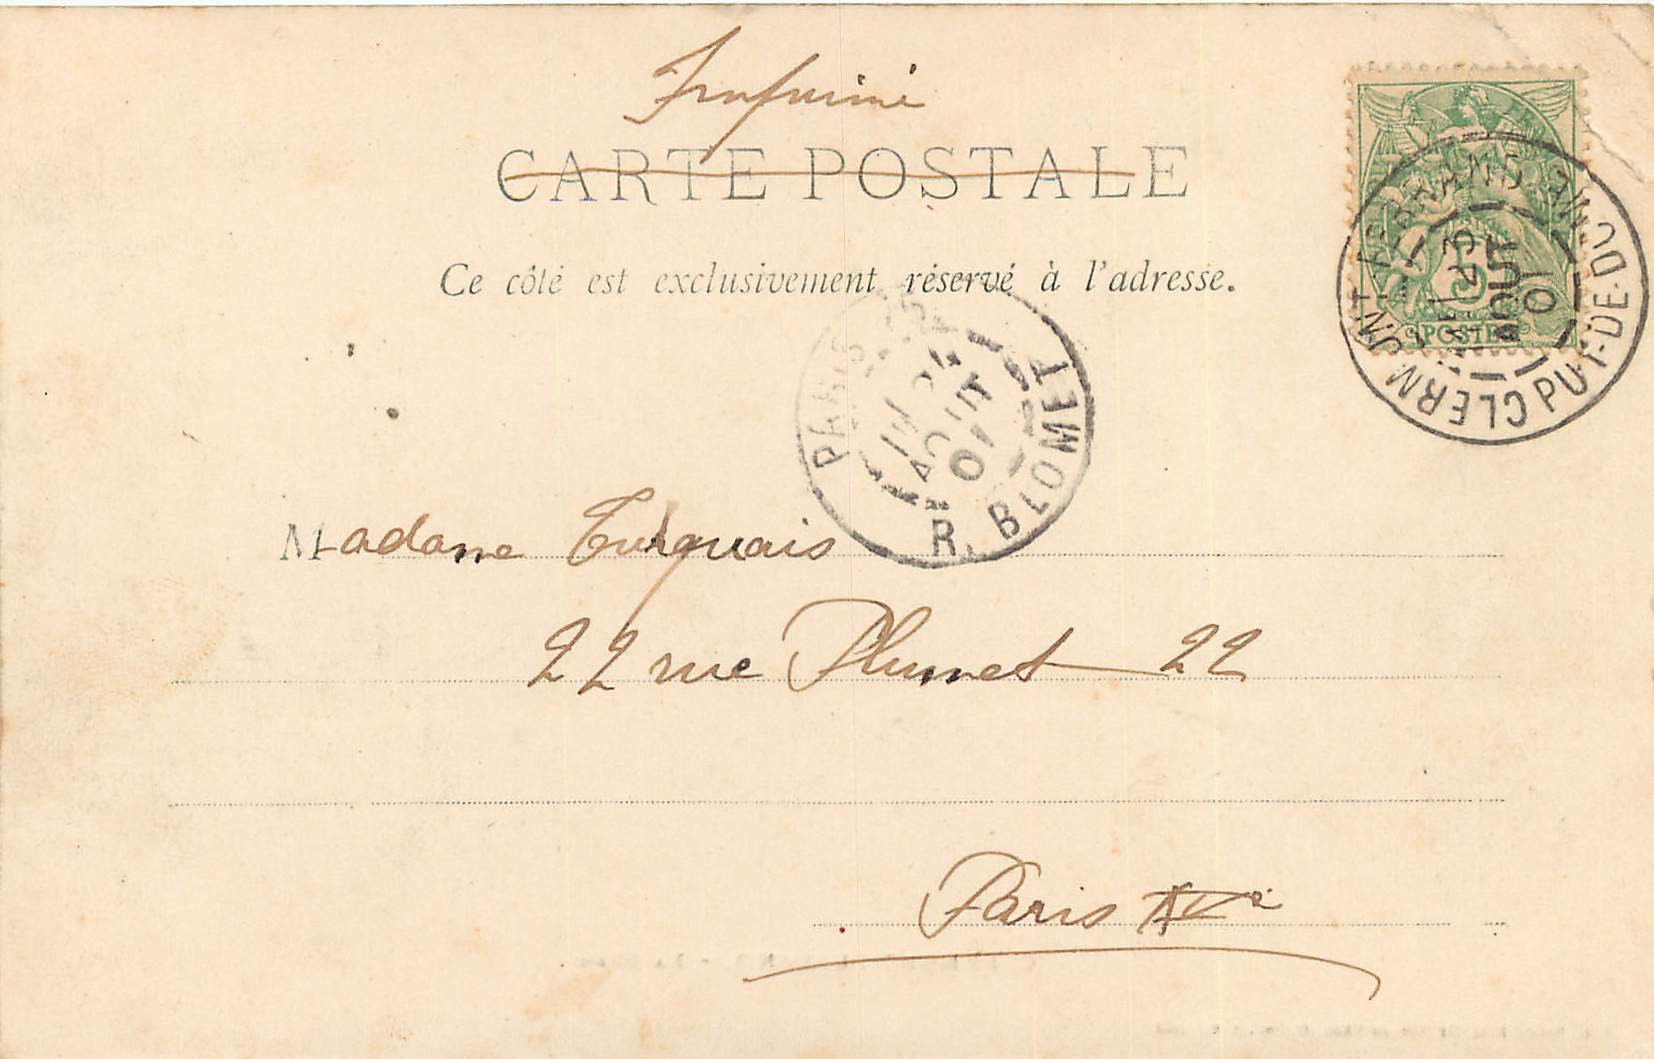 Imprimé
CARTE POSTALE
Ce côté est exclusivement réservé à l'adresse.
POSTES
5
CLERMONT-FERRAND
PUY-DE-DOME
AOUT
01
PARIS
R. BLOMET
AOUT
01
Madame Turquais
22 rue Plumet 22
Paris XVe